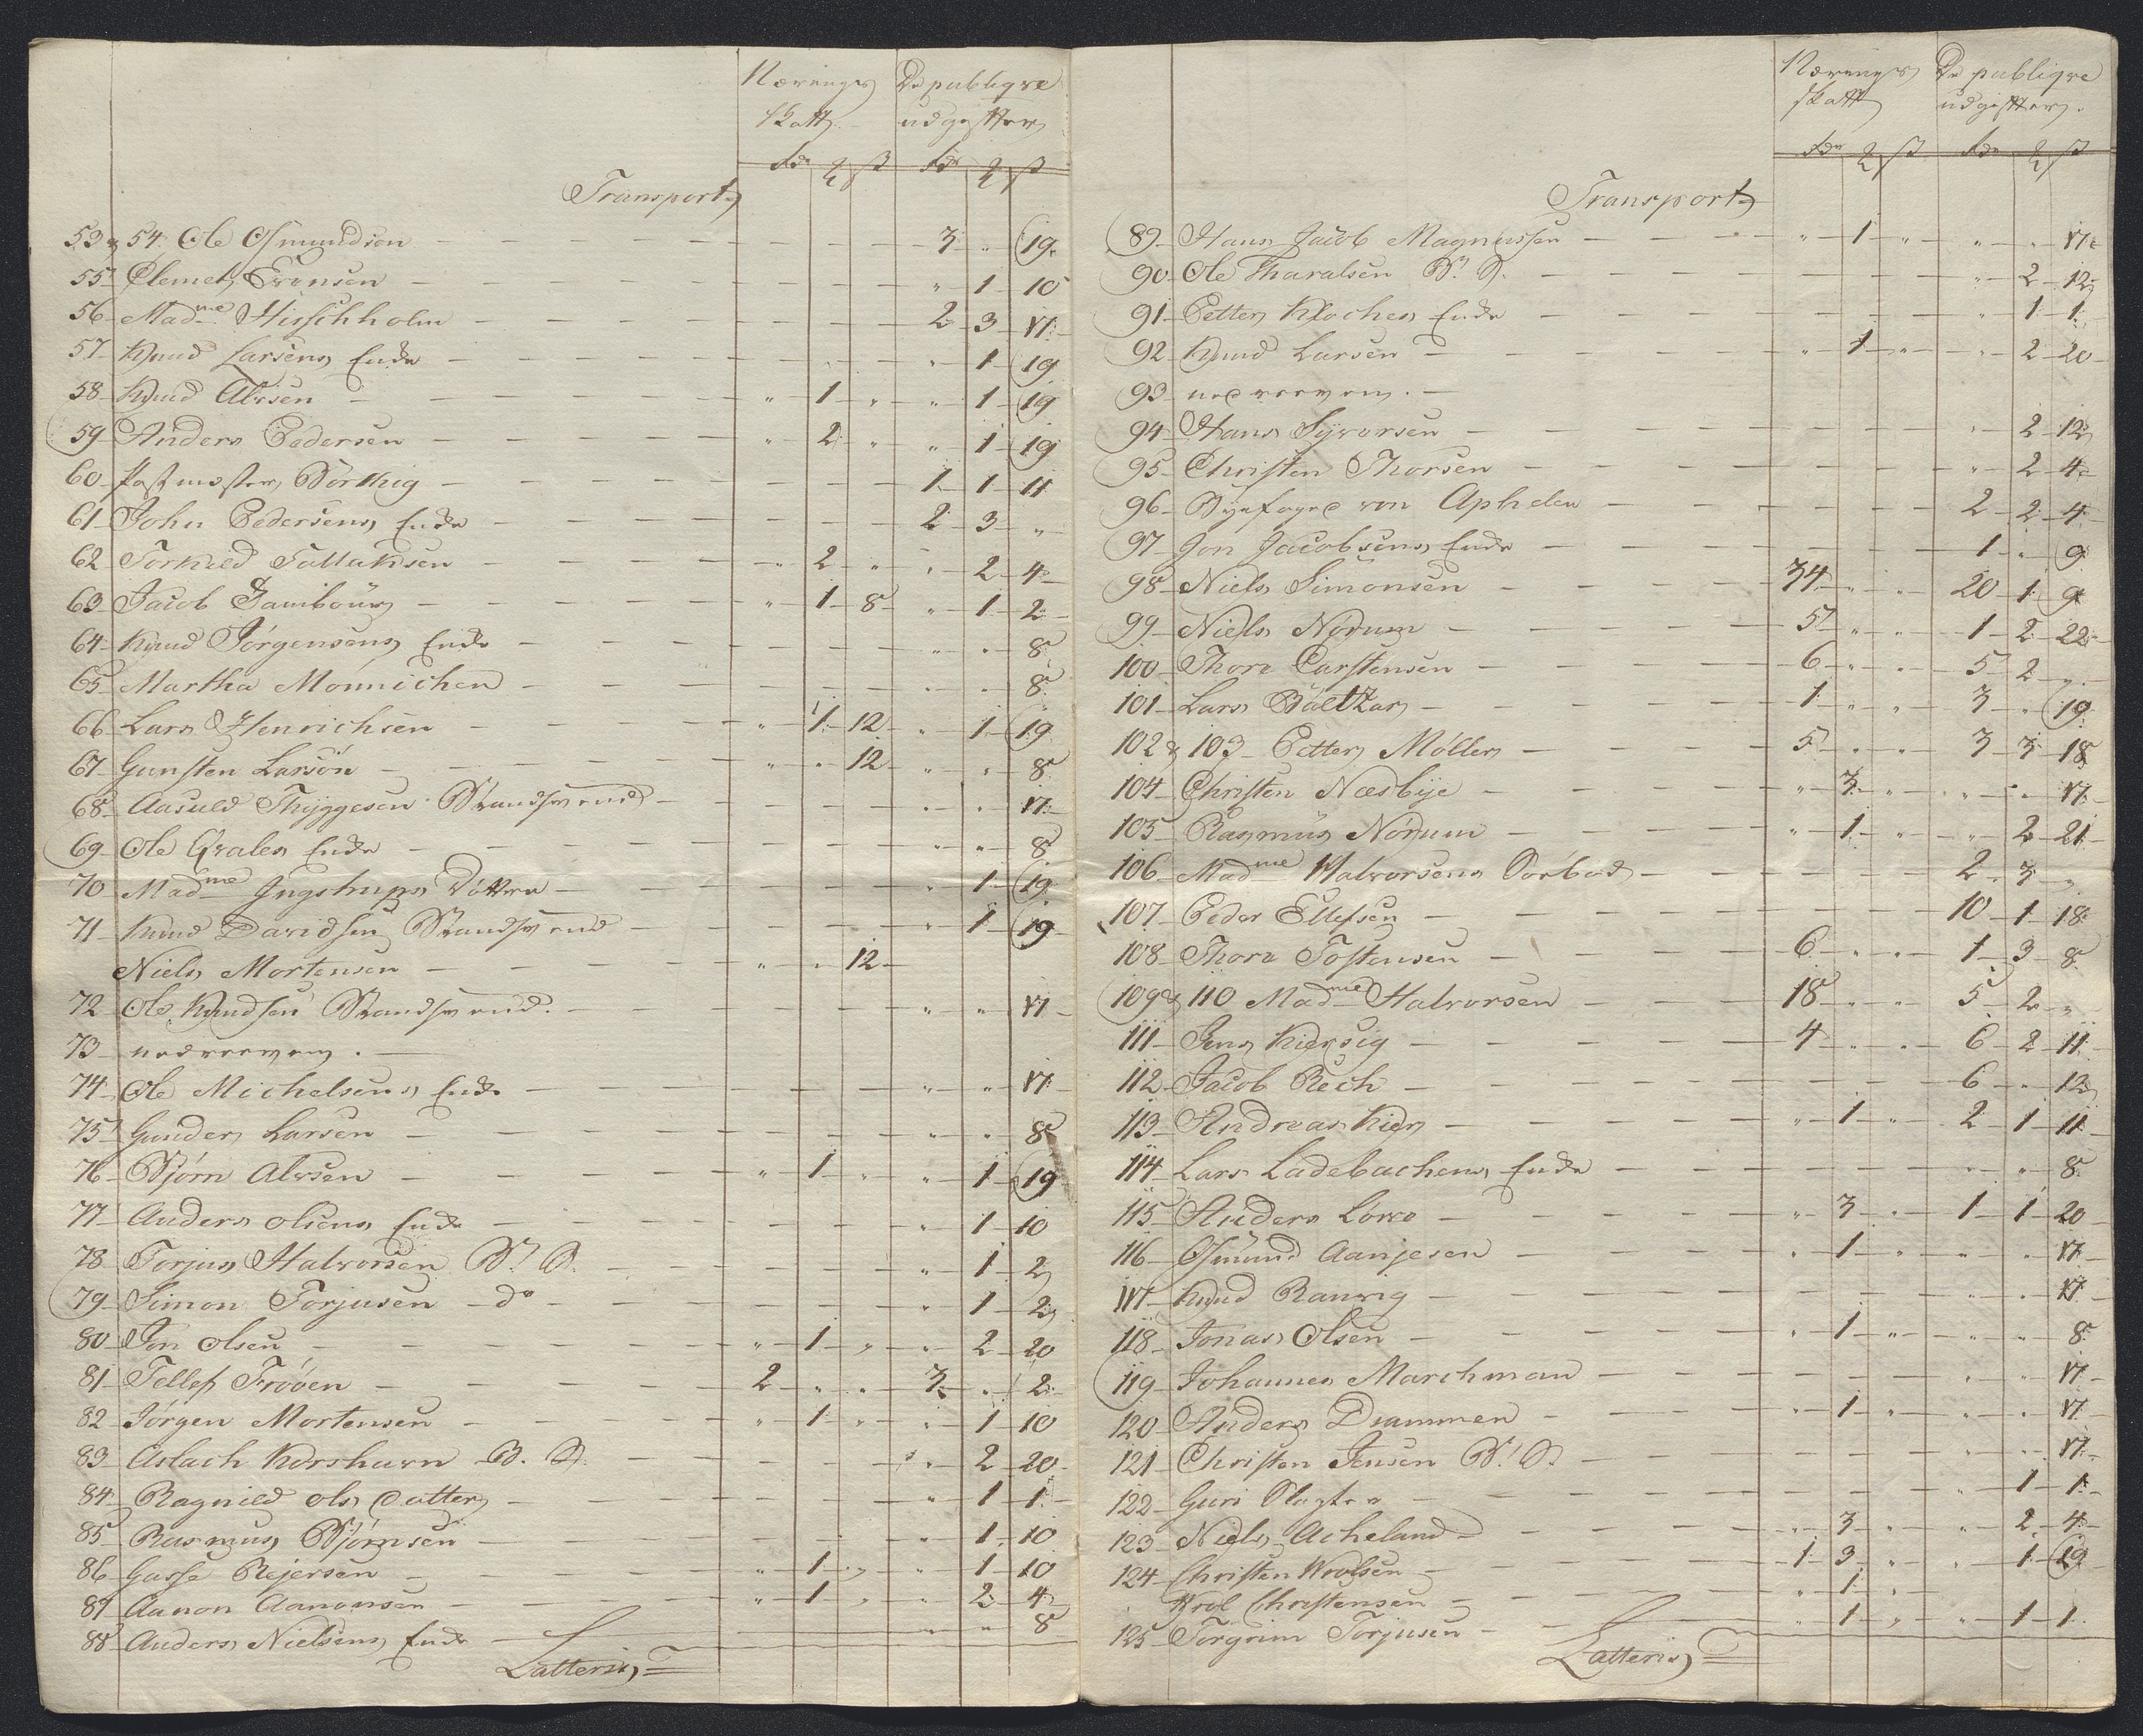 Nærings De publiqve
Skatt udgifter
rdr ₰ ß rdr ₰ ß
Transport
53 & 54. Ole Osmundsen — 3 " 19
55 Clemet Evensen — " 1 10
56 Madme Hirschholm — 2 3 17
57 Knud Larsens Enke — " 1 19
58 Knud Alvsen — " 1 " " 1 19
59 Anders Pedersen — " 2 " " 1 19
60 Postmester Børthig — 1 1 11
61 John Pedersens Enke — 2 3 "
62 Torkild Tallaksen — " 2 " " 2 4
63 Jacob Tambour — " 1 8 " 1 2
64 Knud Jørgensens Enke — " " 8
65 Martha Mönnichen — " " 8
66 Lars Henrichsen — " 1 12 " 1 19
67 Gunsten Larsön — " " 12 " " 8
68 Aasuld Thÿggesen Strandsvend — " " 17
69 Ole Qvales Enke — " " 8
70 Madme Ingstrups Döttre — " 1 19
71 Knud Davidsen Strandsvend — " 1 19
Niels Mortensen — " " 12
72 Ole Knudsen Strandsvend — " " 17
73 nedreven.
74 Ole Michelsens Enke — " " 17
75 Gunder Larsen — " " 8
76 Bjørn Alvsen — " 1 " " 1 19
77 Anders Olsens Enke — " 1 10
78 Torjus Halvorsen B. S. — " 1 2
79 Simon Torjusen do — " 1 2
80 Jon Olsen — " 1 " " 2 20
81 Tellef Frøöen — 2 " " 3 " 2
82 Jørgen Mortensen — " 1 " " 1 10
83 Aslach Korshavn B. S. — " 2 20
84 Ragnild Ols Datter — " 1 1
85 Rasmus Bjørnsen — " 1 10
86 Gasse Rejersen — " 1 " " 1 10
87 Aanon Aanonsen — " 1 " " 2 4
88 Anders Nielsens Enke — " " 8
Latteris
Nærings De publiqve
skatt udgifter.
rdr ₰ ß rdr ₰ ß
Transport
89 Hans Jacob Magnussen — " 1 " " " 17
90 Ole Tharalsen B. S. — " 2 12
91 Petter Kloches Enke — " 1 1
92 Knud Larsen — " 1 " " 2 20
93 nedreven.
94 Hans Syvorsen — " 2 12
95 Christen Thorsen — " 2 4
96 Byefoged von Aphelen — 2 2 4
97 Jon Jacobsens Enke — 1 " 9
98 Niels Simonsen — 34 " " 20 1 9
99 Niels Nørum — 5 " " 1 2 22
100 Thore Carstensen — 6 " " 5 2 "
101 Lars Baltzar — 1 " " 3 " 19
102 & 103 Petter Møller — 5 " " 3 3 18
104 Christen Næsbÿe — " 3 " " " 17
105 Rasmus Nørum — " 1 " " 2 21
106 Madme Halvorsens Søebod — 2 3 "
107 Peder Ellefsen — 10 1 18
108 Thore Tostensen — 6 " " 1 3 8
109 & 110 Madme Halvorsen — 18 " " 5 2 "
111 Jens Kiersig — 4 " " 6 2 11
112 Jacob Rech — 6 " 12
113 Andreas Kier — " 1 " 2 1 11
114 Lars Ladebachens Enke — " " 8
115 Anders Löwe — " 3 " 1 1 20
116 Osmund Aanjesen — " 1 " " " 17
117 Knud Ranvig — " " 17
118 Jonas Olsen — " 1 " " " 8
119 Johannes Marchman — " " 17
120 Anders Drammen — " 1 " " " 17
121 Christen Jensen B. S. — " " 17
122 Guri Slagter — " 1 1
123 Niels Acheland — " 3 " " 2 4
124 Christen Wrolsen — 1 3 " " 1 19
Wrol Christensen — " 1 "
125 Torgrim Torjusen — " 1 " " 1 1
Latteris